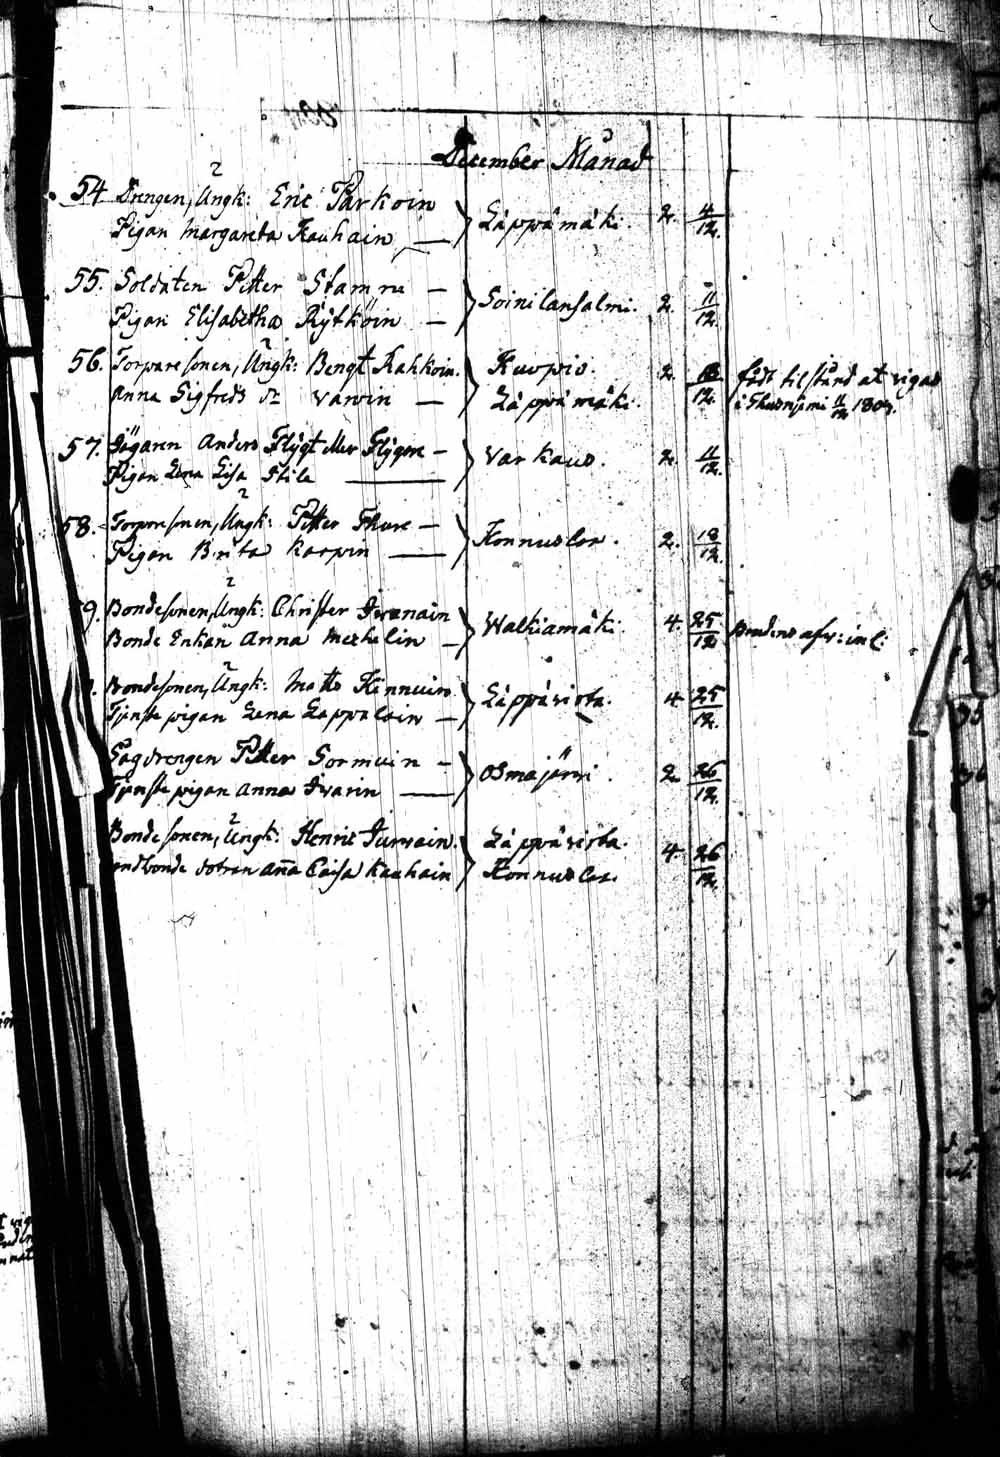 December Månad
54 Drengen, Ungk: Eric Parkoin
Pigan Margareta Kauhain — Läppämäki. 2. 4/12.
55. Soldaten Petter Stamm —
Pigan Elisabetha Rytköin — Soinilansalmi. 2. 11/12.
56. Torparesonen, Ungk: Bengt Kahkoin. Kuopio. 2.
Anna Sigfreds dr — Läppämäki. 12. i 11/12 180
57. Jägaren Anders Flygt eller Flygare —
Pigan Lena Lisa Stile — Varkaus. 2. 11/12.
58. Torparesonen, Ungk: Petter Thure —
Pigan Brita Karpin — Konnuslax. 2. 18/12.
9. Bondesonen, Ungk: Christer Iwanain
Bonde Enkan Anna Mechelin — Walkiamäki. 4. 25/12
Bondesonen, Ungk: Matts Kinnuin
Tjenste pigan Lena Lappalain — Läppävirta. 4 25/12.
Petter Sormuin —
Tjenste pigan Anna Iwarin — Osmajärvi. 2 26/12.
Bondesonen, Ungk: Henric Läppävirta. 4. 26/12.
dotren Anna Caisa Kauhain Konnuslax.